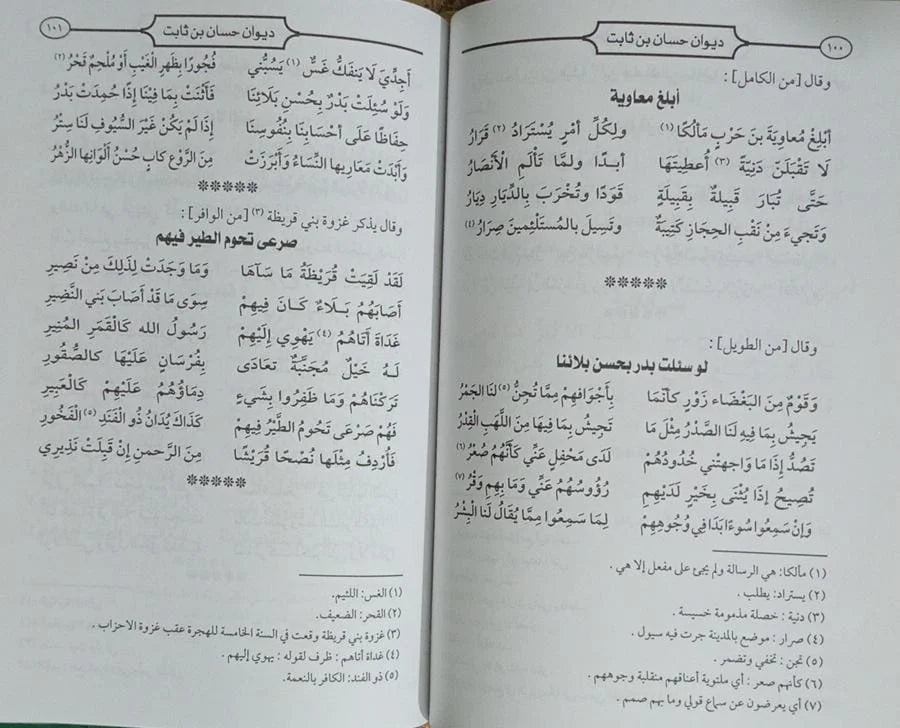 ديوان حسان بن ثابت
١٠٠
وقال [من الكامل] :
أبلغ معاوية
أبْلِغْ مُعاوِيَةَ بنَ حَرْبٍ مَألُكًا (١) ولكُلِّ أمْرٍ يُسْتَرادُ (٢) قَرَارُ
لَا تَقْبَلَنَّ دَنِيَّةً (٣) أُعطِيتَهَا أبدًا ولمَّا تَألَمِ الْأَنْصَارُ
حَتَّى تُبَارَ قَبِيلَةٌ بِقَبِيلَةٍ قَوَدًا وتُخْرَبَ بالدِّيَارِ دِيَارُ
وَتَجيءَ مِنْ نَقْبِ الحِجَازِ كَتِيبَةٌ وتَسِيلَ بالمُسْتَلْئِمِينَ صِرَارُ (٤)
*****
وقال [من الطويل] :
لو سئلت بدر بحسن بلائنا
وَقَوْمٌ مِنَ البَغْضَاء زَوْرٍ كأنَّمَا بِأَجْوَافِهِمْ مِمَّا تُجِنُّ (٥) لنَا الجَمْرُ
يَجِيْشُ بِمَا فِيهِ لَنَا الصَّدْرُ مِثْلَ مَا تَجِيشُ بِمَا فِيهَا مِنَ اللَّهَبِ القِدْرُ
تَصُدُّ إذَا مَا وَاجهتْنِي خُدُودُهُمْ لَدَى مَحْفِلٍ عَنِّي كَأَنَّهُمُ صُعْرُ (٦)
تُصِيخُ إذَا يُثْنَى بِخَيْرٍ لَدَيْهِمِ رُؤُوسُهُمُ عَنِّي وَمَا بِهِمِ وَقْرُ (٧)
وَإنْ سَمِعُوا سُوءًا بَدَا فِي وُجوهِهِمْ لِمَا سَمِعُوا مِمَّا يُقَالُ لَنَا الْبِشْرُ
(١) مألكا: هي الرسالة ولم يجئ على مفعل إلا هي .
(٢) يستراد: يطلب .
(٣) دنية : خصلة مذمومة خسيسة .
(٤) صرار : موضع بالمدينة جرت فيه سيول .
(٥) تجن : تخفي وتضمر .
(٦) كأنهم صعر : أي ملتوية أعناقهم منقلبة وجوههم .
(٧) أي يعرضون عن سماع قولي وما بهم صمم .
ديوان حسان بن ثابت
١٠١
أَجِدِّيَ لَا يَنفَكُّ غَسٌّ (١) يَسُبُّنِي فُجُورًا بِظَهرِ الْغَيْبِ أَوْ مُلْحِمٌ قَحْرُ (٢)
وَلَوْ سُئِلَتْ بَدْرٌ بِحُسْنِ بَلَائِنَا فَأَثْنَتْ بِمَا فِيْنَا إذًا حُمِدَتْ بَدْرُ
حِفَاظًا عَلَى أَحْسَابِنَا بِنُفُوسِنَا إذَا لَمْ يَكُنْ غَيْرَ السُّيُوفِ لَنَا سِتْرُ
وَأَبْدَتْ مَعَاريها النِّسَاءُ وَأَبْرَزَتْ مِنَ الرَّوْعِ كابٍ حُسْنُ أَلْوَانِها الزُّهْرُ
*****
وقال يذكر غزوة بني قريظة (٣) [من الوافر] :
صرعى تحوم الطير فيهم
لَقَدْ لَقِيَتْ قُرَيْظَةُ مَا سَآهَا وَمَا وَجَدَتْ لِذَلِكَ مِنْ نَصِيرِ
أَصَابَهُمُ بَلَاءٌ كَانَ فِيهِمْ سِوَى مَا قَدْ أَصَابَ بَنِي النَّضِيرِ
غَدَاةَ أَتَاهُمُ (٤) يَهْوِي إلَيْهِمْ رَسُولُ الله كَالْقَمَرِ المُنِيرِ
لَهُ خَيْلٌ مُجَنَّبَةٌ تعَادَى بِفُرْسَانٍ عَلَيْهَا كالصُّقُورِ
تَرَكْنَاهُمْ وَمَا ظَفِرُوا بِشَيءٍ دِمَاؤُهُمُ عَلَيْهِمْ كَالْعَبِيرِ
فَهُمْ صَرْعَى تَحُومُ الطَّيْرُ فِيهِمْ كَذَاكَ يُدَانُ ذُو الْفَنَدِ (٥) الْفَخُورِ
فَأُرْدِفُ مِثْلَها نُصْحًا قُرَيْشًا مِنَ الرَّحمنِ إنْ قَبِلَتْ نَذِيرِي
*****
(١) الغس: اللئيم.
(٢) القحر: الضعيف.
(٣) غزوة بني قريظة وقعت في السنة الخامسة للهجرة عقب غزوة الاحزاب .
(٤) غداة أتاهم : ظرف لقوله : يهوي إليهم .
(٥) ذو الفند: الكافر بالنعمة.